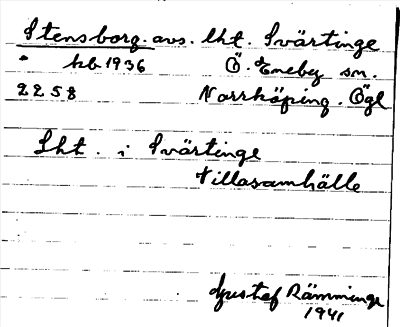 Stensborg. avs. lht. Svärtinge
hb 1936 Ö. Eneby sn.
2258 Norrköping. Ögl
Lht. i Svärtinge
Villasamhälle
Gustaf Rämminge
1941